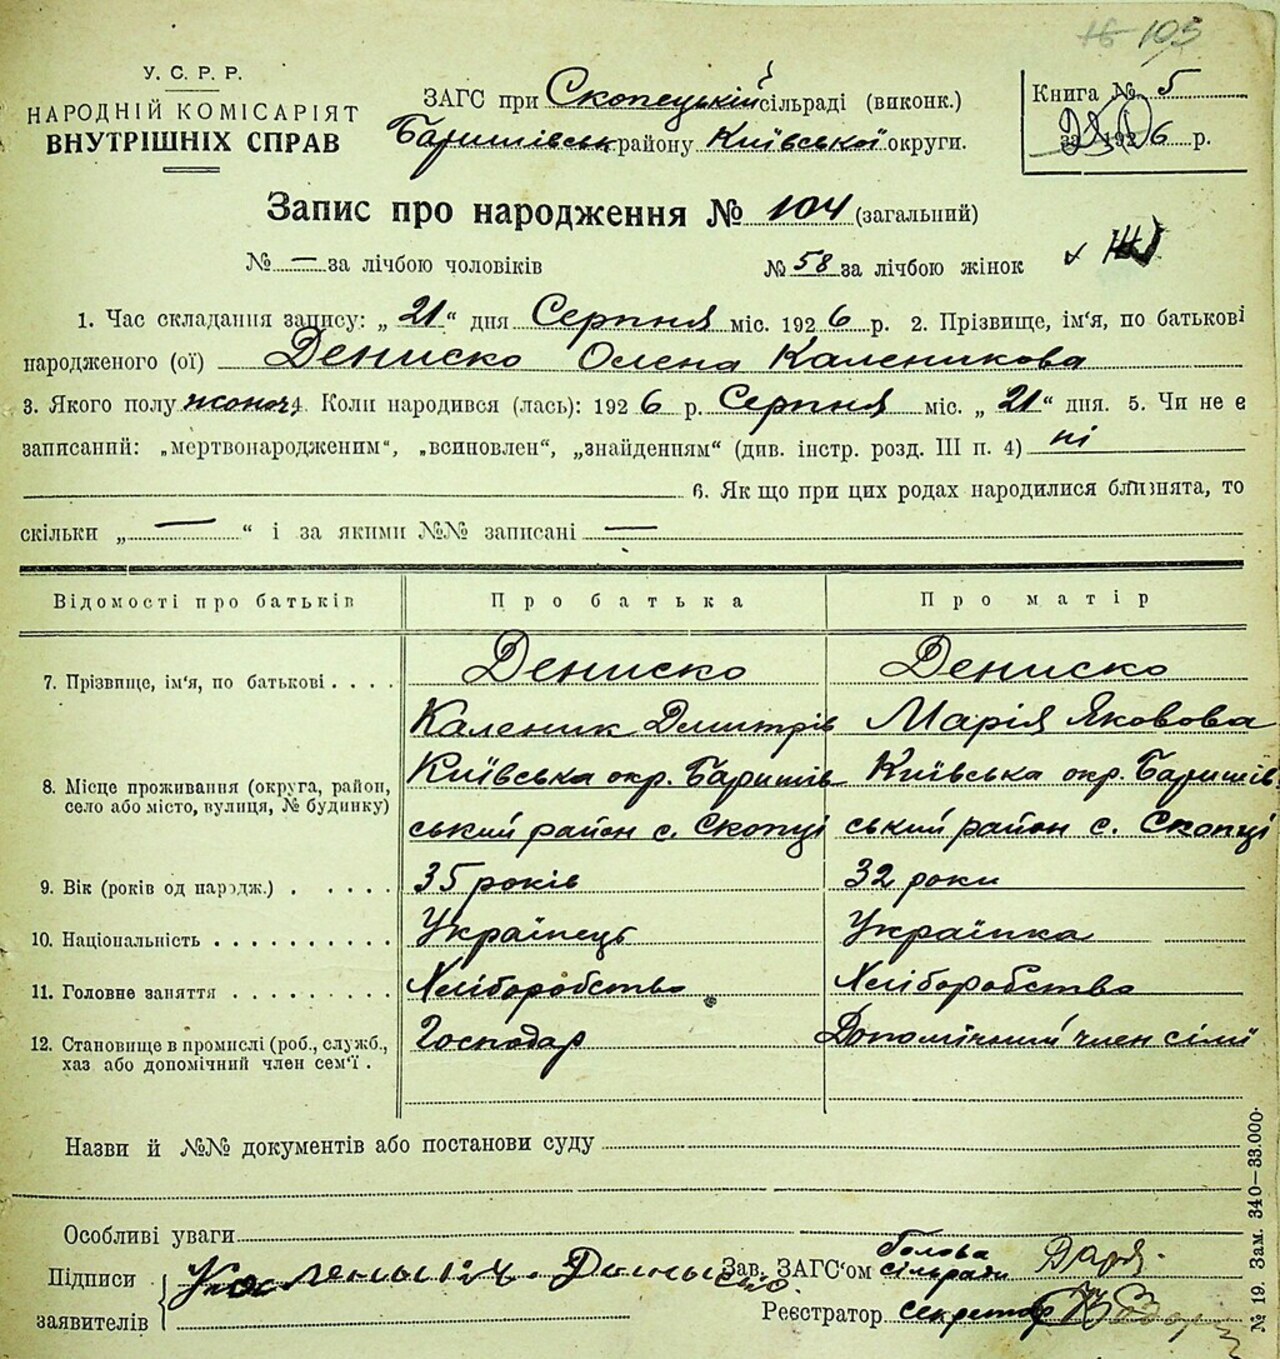 105
У. С. Р. Р.
НАРОДНІЙ КОМІСАРІЯТ
ВНУТРІШНІХ СПРАВ
ЗАГС при Скопецькій сільраді (виконк.)
Баришівськ району Київської округи.
Книга № 5
за 1926 р.
Запис про народження № 104 (загальний)
№ — за лічбою чоловіків № 58 за лічбою жінок
1. Час складання запису: „ 21 “ дня Серпня міс. 1926 р. 2. Прізвище, ім'я, по батькові
народженого (ої) Дениско Олена Каленикова
3. Якого полу жоноч. 4. Коли народився (лась): 1926 р. Серпня міс. „ 21 “ дня. 5. Чи не є
записаний: „мертвонародженим“, „всиновлен“, „знайденням“ (див. інстр. розд. III п. 4) ні
6. Як що при цих родах народилися близнята, то
скільки „ — “ і за якими №№ записані —
Відомості про батьків Про батька Про матір
7. Прізвище, ім'я, по батькові . . . . Дениско Дениско
Каленик Дмитрів Марія Яковова
8. Місце проживання (округа, район, село або місто, вулиця, № будинку) Київська окр. Баришів Київська окр. Баришів
ський район с. Скопці ський район с. Скопці
9. Вік (років од народж.) . . . . . 35 років 32 роки
10. Національність . . . . . . . . . . Українець Українка
11. Головне заняття . . . . . . . . . Хліборобство Хліборобства
12. Становище в промислі (роб., служб., хаз або допомічний член сем'ї . Господар Допомічний член сімї
Назви й №№ документів або постанови суду
Особливі уваги
Підписи заявителів Каленик Дениско.
Зав. ЗАГС'ом Голова сільради
Реєстратор секретар
№ 19. Зам. 340—33.000.